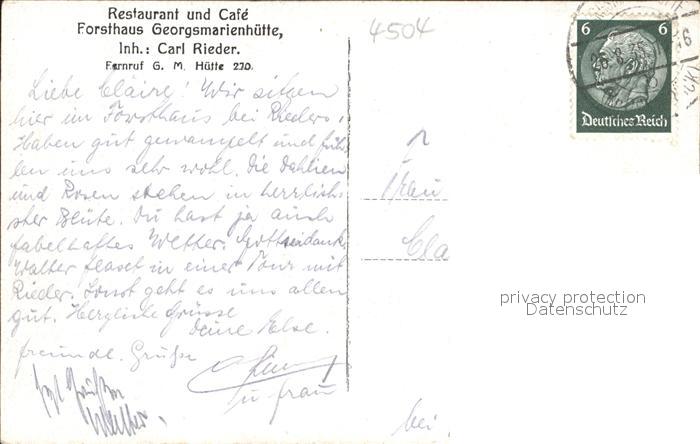 Restaurant und Café
Forsthaus Georgsmarienhütte,
Inh.: Carl Rieder.
Fernruf G. M. Hütte 270.
4504
6 6
Deutsches Reich
Liebe Claire! Wir sitzen
hier im Forsthaus bei Rieders,
haben gut und füh-
len uns sehr wohl. Die Dahlien
und Rosen stehen in herrlich-
ster Blüte. Du hast ja auch
fabelhaftes Wetter. Gottseidank
Walter in einer Tour mit
Rieder. Sonst geht es uns allen
gut. Herzliche Grüsse
Deine Else.
freundl. Grüße
u Frau
Walter.
Frau
Cla
bei
privacy protection
Datenschutz